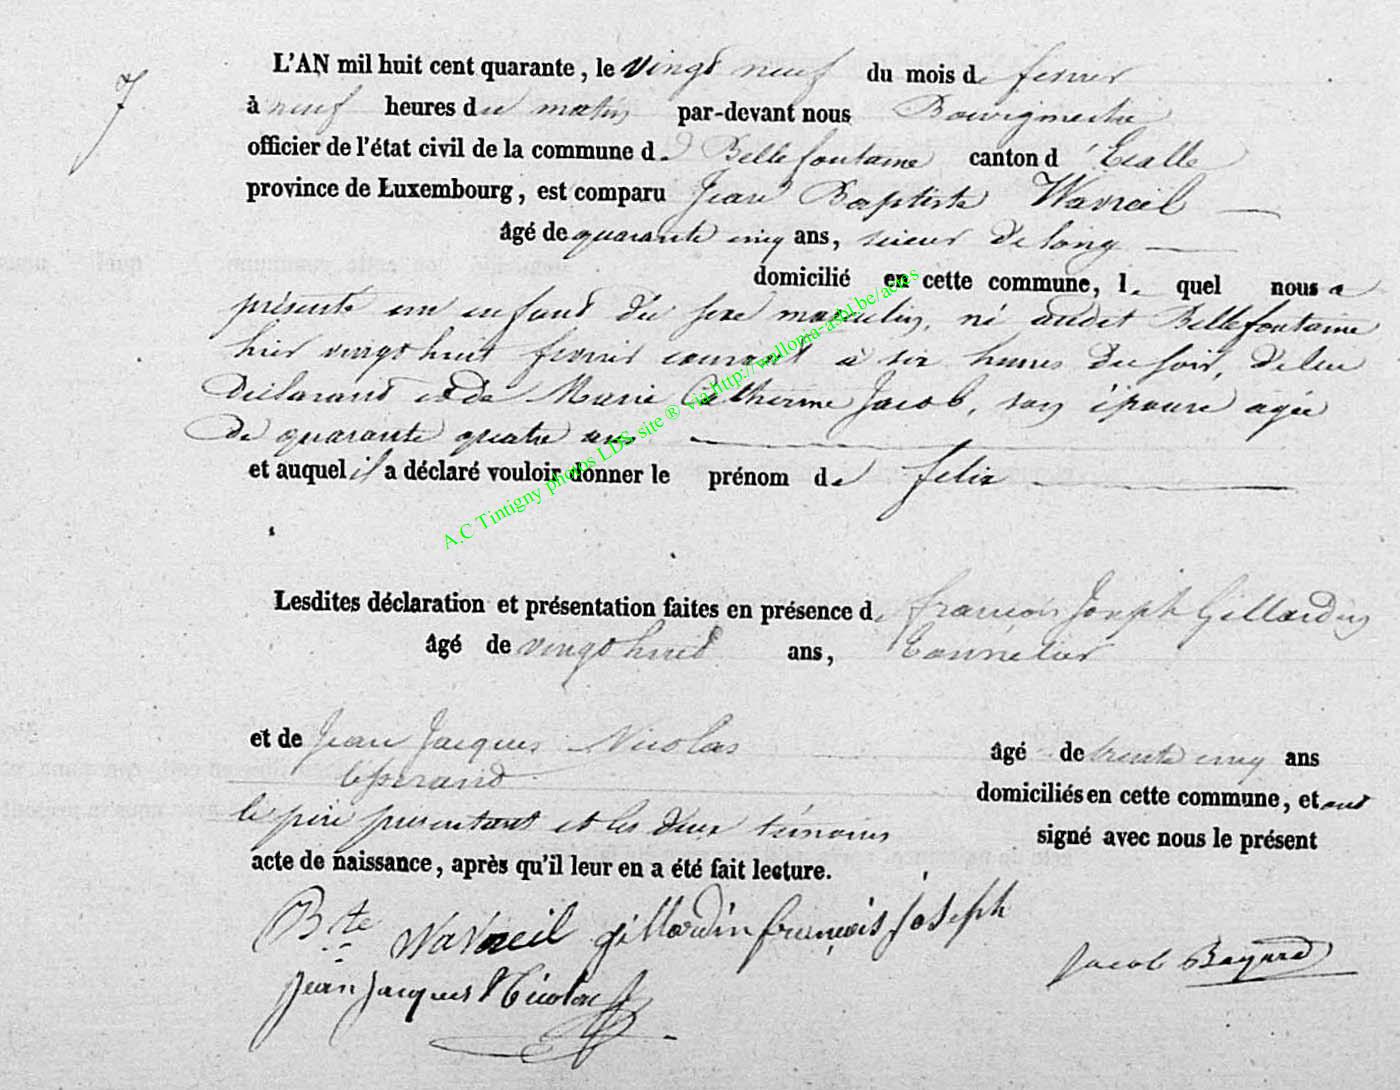 7
L'AN mil huit cent quarante, le vingt neuf du mois de fevrier
à neuf heures du matin par-devant nous Bourgmestre
officier de l'état civil de la commune de Bellefontaine canton d'Etalle
province de Luxembourg, est comparu Jean Baptiste Wavreil
âgé de quarante cinq ans, scieur de long
domicilié en cette commune, le quel nous a
présenté un enfant du sexe masculin, né audit Bellefontaine
hier vingt huit fevrier courant à six heures du soir, de lui
Déclarant et de Marie Catherine Jacob, son épouse agée
de quarante quatre ans
et auquel il a déclaré vouloir donner le prénom de felix
Lesdites déclaration et présentation faites en présence de françois Joseph Gillardin
âgé de vingt huit ans, tonnelier
et de Jean Jacques Nicolas âgé de trente cinq ans
domiciliés en cette commune, et ont
le père présentant et les deux témoins signé avec nous le présent
acte de naissance, après qu'il leur en a été fait lecture.
Bte Wavreil gillardin françois joseph
Jacob Bagard
Jean Jacques Nicolas
A.C Tintigny photos LDS site ® via http://wallonia-asbl.be/actes